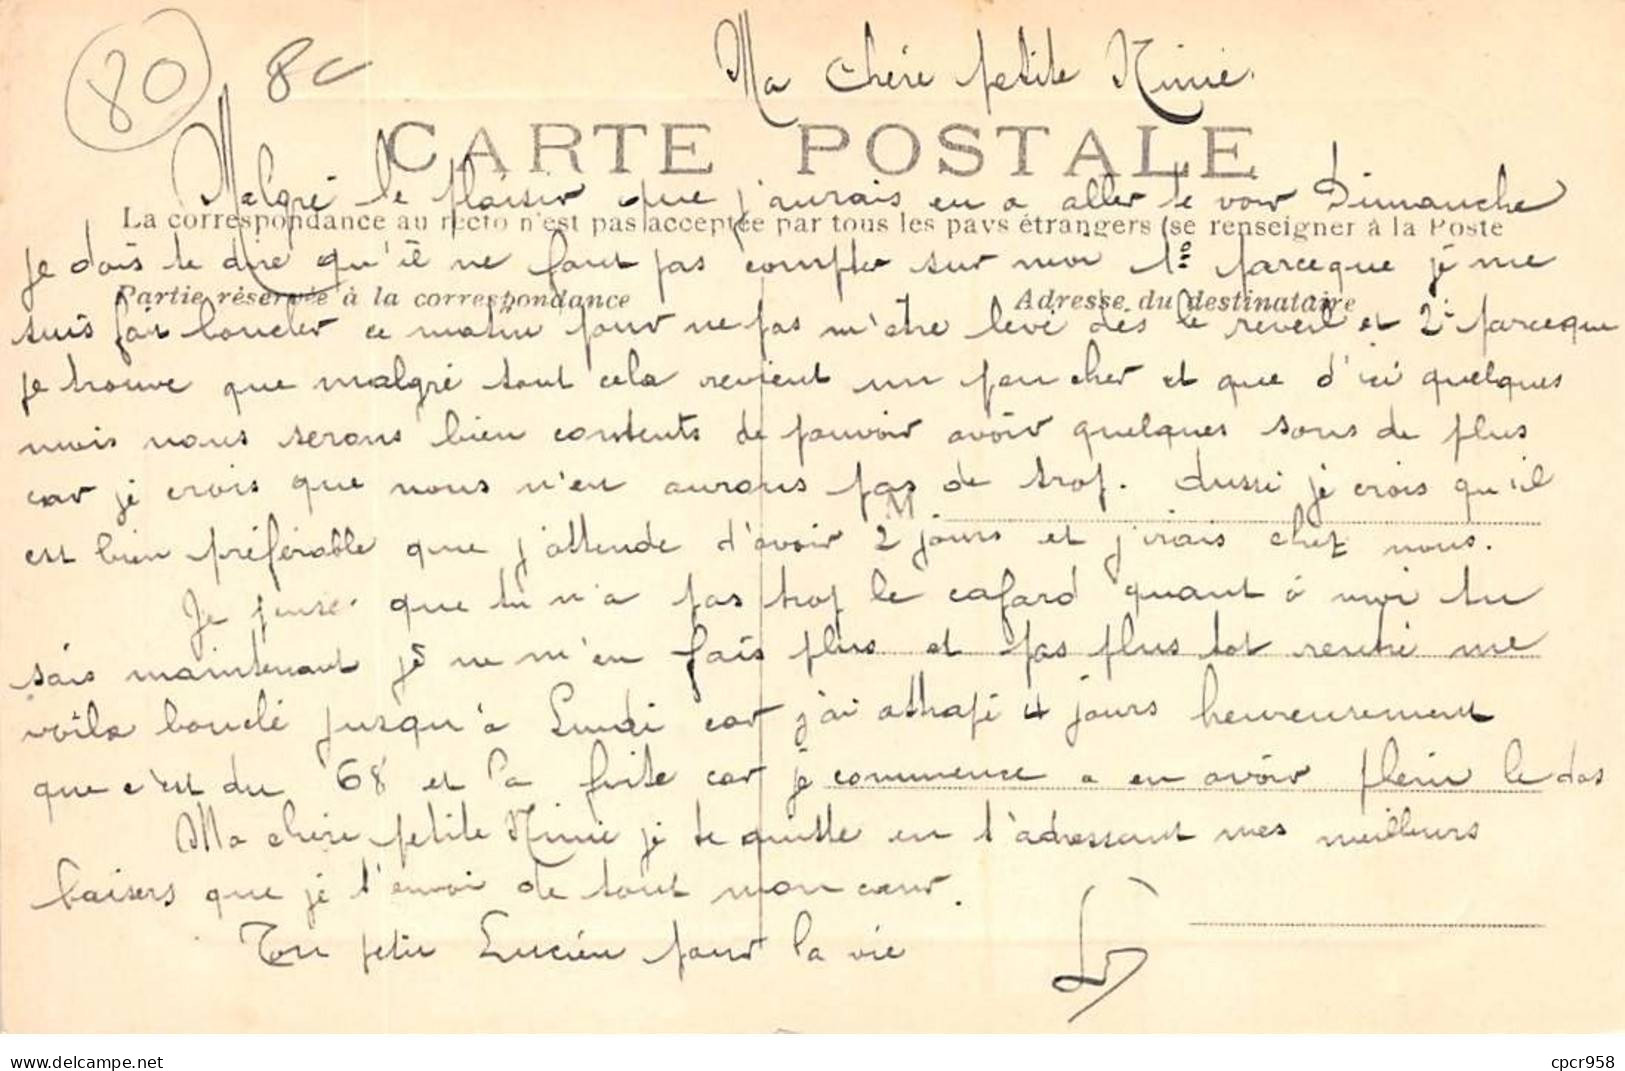 80 8c
Ma chère petite Ninie.
CARTE POSTALE
Malgré le plaisir que j'aurais eu a aller te voir Dimanche
La correspondance au recto n'est pas acceptée par tous les pays étrangers (se renseigner à la Poste
je dois te dire qu'il ne faut pas compter sur moi 1º parceque je me
Partie réservée à la correspondance Adresse du destinataire
suis fait boucler ce matin pour ne pas m'être levé dès le reveil et 2º parceque
je trouve que malgré tout cela revient un peu cher et que d'ici quelques
mois nous serons bien contents de pouvoir avoir quelques sous de plus
car je crois que nous n'en aurons pas de trop. Aussi je crois qu'il
est bien préférable que j'attende d'avoir 2 jours et j'irais chez nous.
Je pense que tu n'a pas trop le cafard quant à moi tu
sais maintenant je ne m'en fais plus et pas plus tot rentré me
voila bouclé jusqu'à Lundi car j'ai attrapé 4 jours heureusement
que c'est du 68 et la fuite car je commence a en avoir plein le dos
Ma chère petite Ninie je te quitte en t'adressant mes meilleurs
baisers que je t'envoi de tout mon cœur.
Ton petit Lucien pour la vie
delcampe.net
cpcr958